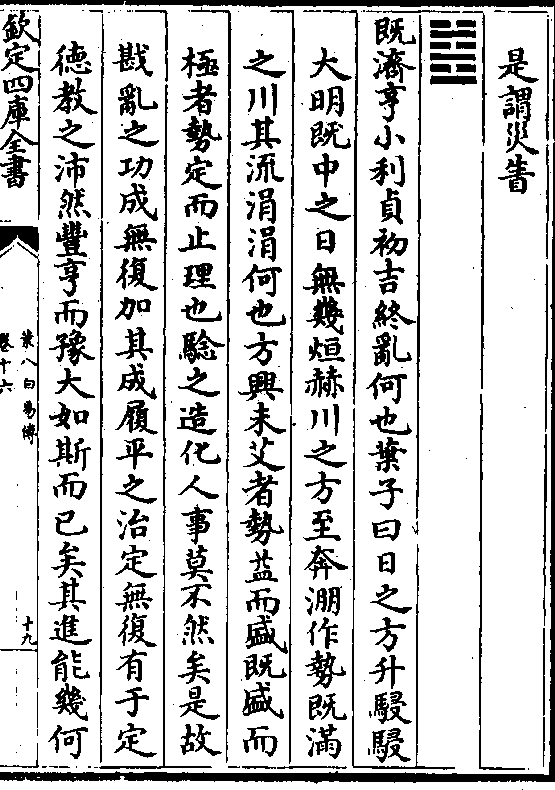 是謂災眚
既濟亨小利貞初吉終亂何也葉子曰日之方升駸駸
大明既中之日無幾烜赫川之方至奔淜作勢既滿
之川其流涓涓何也方興未艾者勢益而盛既盛而
極者勢定而止理也騐之造化人事莫不然矣是故
戡亂之功成無復加其成履平之治定無復有于定
德教之沛然豐亨而豫大如斯而已矣其進能幾何
欽定四庫全書
葉八白易傳
卷十六
十九